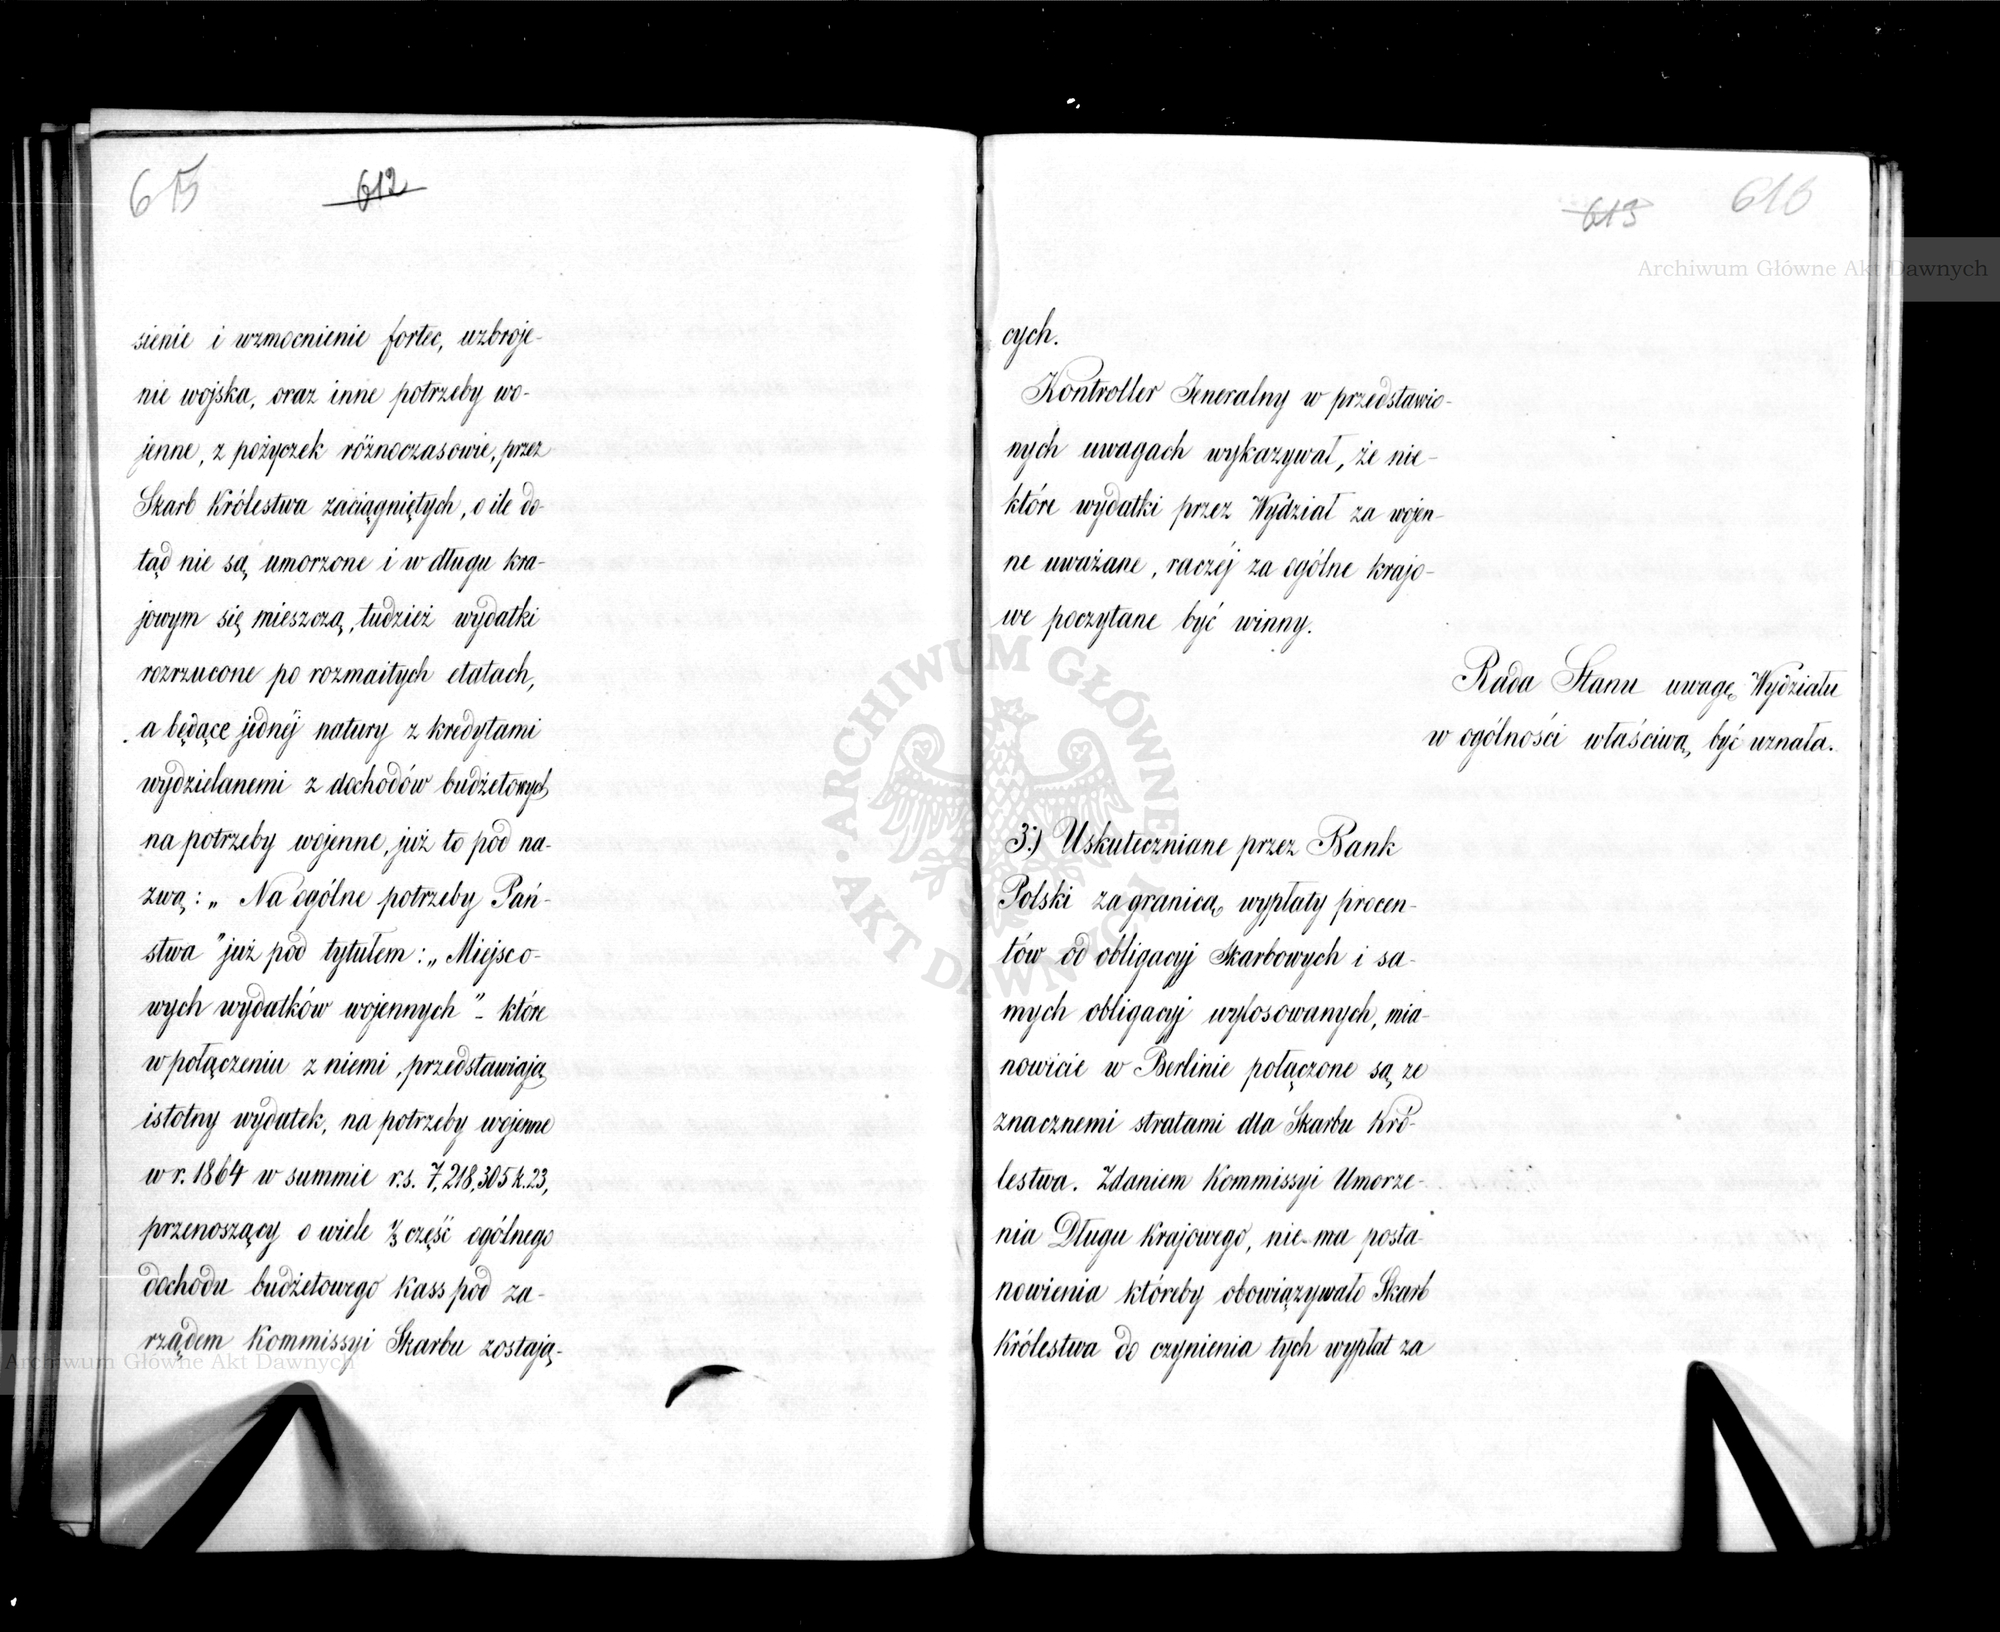 615
612
sienie i wzmocnienie fortec, uzbroje-
nie wojska, oraz inne potrzeby wo-
jenne, z pożyczek różnoczasowie, przez
Skarb Królestwa zaciągniętych, o ile do-
tąd nie są umorzone i w długu kra-
jowym się mieszczą, tudzież wydatki
rozrzucone po rozmaitych etatach,
a będące jednéj natury z kredytami
wydzielanemi z dochodów budżetowych
na potrzeby wojenne, już to pod na-
zwą: „Na ogólne potrzeby Pań-
stwa" już pod tytułem: „Miejsco-
wych wydatków wojennych" - które
w połączeniu z niemi, przedstawiają
istotny wydatek, na potrzeby wojenne
w r. 1864 w summie r.s. 7,218,305 k. 23,
przenoszący o wiele ⅓ część ogólnego
dochodu budżetowego Kass pod za-
rządem Kommissyi Skarbu zostają-
613
616
cych.
Kontroller Jeneralny w przedstawio-
nych uwagach wykazywał, że nie-
które wydatki przez Wydział za wojen-
ne uważane, raczéj za ogólne krajo-
we poczytane być winny.
Rada Stanu uwagę Wydziału
w ogólności właściwą być uznała.
3.) Uskuteczniane przez Bank
Polski za granicą wypłaty procen-
tów od obligacyj Skarbowych i sa-
mych obligacyj wylosowanych, mia-
nowicie w Berlinie połączone są ze
znacznemi stratami dla Skarbu Kró-
lestwa. Zdaniem Kommissyi Umorze-
nia Długu Krajowego, nie ma posta-
nowienia któreby obowiązywało Skarb
Królestwa do czynienia tych wypłat za
Archiwum Główne Akt Dawnych
ARCHIWUM GŁÓWNE AKT DAWNYCH
Archiwum Główne Akt Dawnych